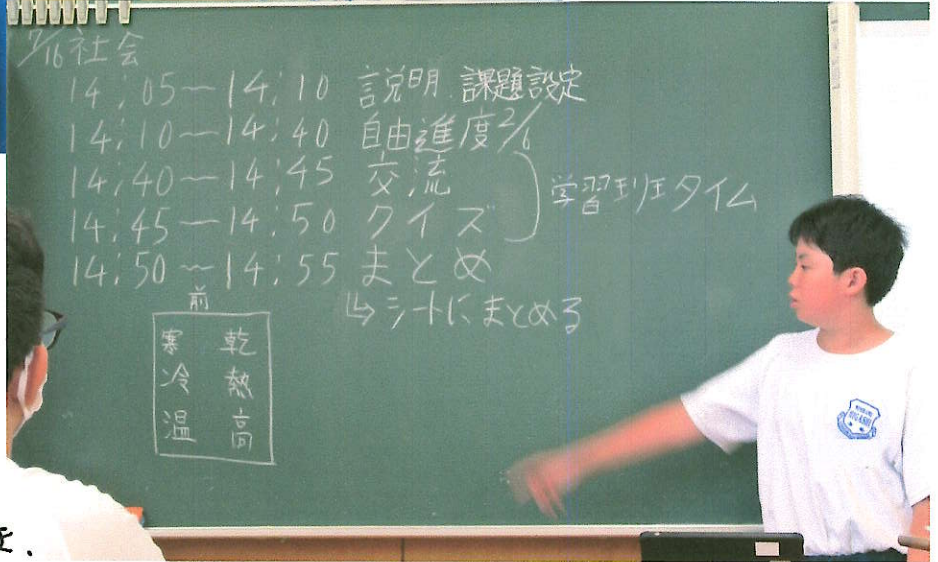 7/16 社会
14:05～14:10 説明.課題設定
14:10～14:40 自由進度2/6
14:40～14:45 交流
14:45～14:50 クイズ
学習班タイム
14:50～14:55 まとめ
↳シートにまとめる
前
寒 乾
冷 熱
温 高